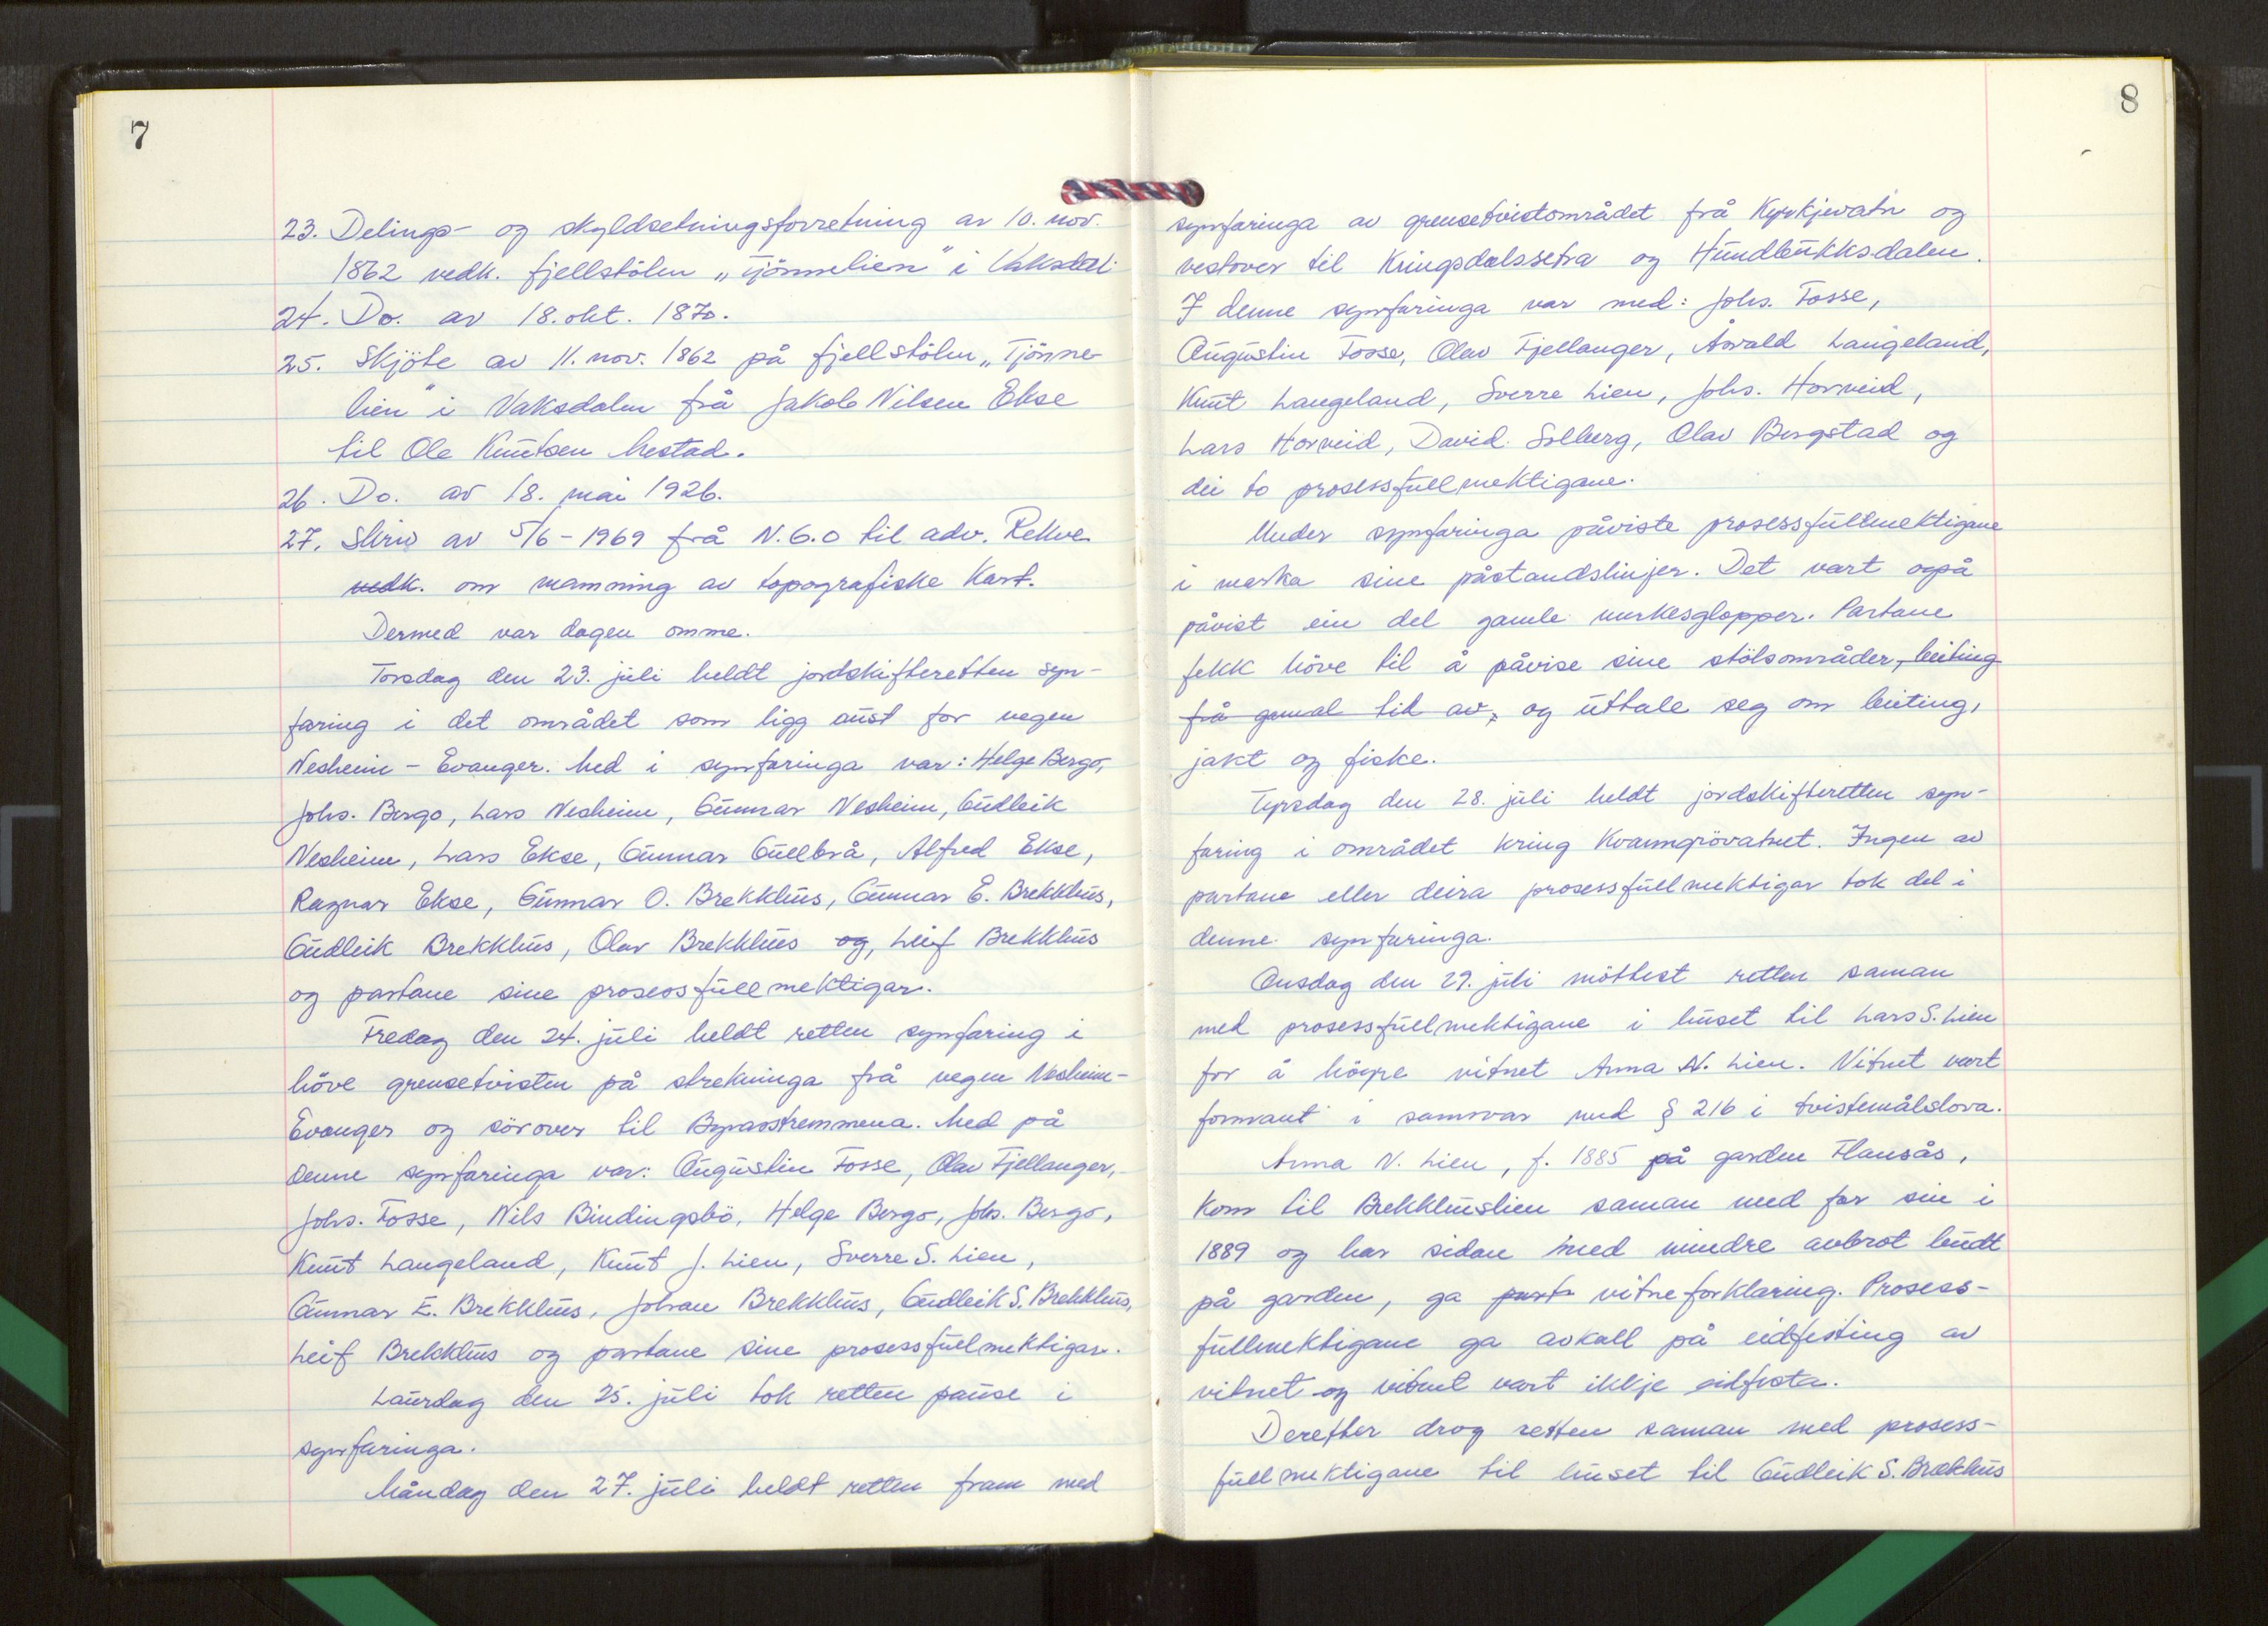 7
23. Delings- og skyldsetningsforretning av 10. nov.
1862 vedk. fjellstölen „Tjönnelien" i Vaksdal.
24. Do. av 18. okt. 1870.
25. Skjöte av 11. nov. 1862 på fjellstölen „Tjönne-
lien" i Vaksdalen frå Jakob Nilsen Ekse
til Ole Knutsen Mestad.
26. Do. av 18. mai 1926.
27. Skriv av 5/6-1969 frå N.G.O til adv. Rekve
vedk. om ramning av topografiske kart.
Dermed var dagen omme.
Torsdag den 23. juli heldt jordskifteretten syn-
faring i det området som ligg aust for vegen
Nesheim - Evanger. Med i synfaringa var: Helge Bergo,
Johs. Bergo, Lars Nesheim, Gunnar Nesheim, Gudleik
Nesheim, Lars Ekse, Gunnar Gullbrå, Alfred Ekse,
Ragnar Ekse, Gunnar O. Brekkhus, Gunnar E. Brekkhus,
Gudleik Brekkhus, Olav Brekkhus og, Leif Brekkhus
og partane sine prosessfullmektigar.
Fredag den 24. juli heldt retten synfaring i
höve grensetvisten på strekninga frå vegen Nesheim-
Evanger og sörover til Byrastremmena. Med på
denne synfaringa var: Augustin Fosse, Olav Fjellanger,
Johs. Fosse, Nils Bindingsbö, Helge Bergo, Johs. Bergo,
Knut Langeland, Knut J. Lien, Sverre S. Lien,
Gunnar E. Brekkhus, Johan Brekkhus, Gudleik S. Brekkhus,
Leif Brekkhus og partane sine prosessfullmektigar.
Laurdag den 25. juli tok retten pause i
synfaringa.
Måndag den 27. juli heldt retten fram med
8
synfaringa av grensetvistområdet frå Kyrkjevatn og
vestover til Kringsdalssetra og Hundbukksdalen.
I denne synfaringa var med: Johs. Fosse,
Augustin Fosse, Olav Fjellanger, Åsvald Langeland,
Knut Langeland, Sverre Lien, Johs. Horveid,
Lars Horveid, David Solberg, Olav Bergstad og
dei to prosessfullmektigane.
Under synfaringa påviste prosessfullmektigane
i marka sine påstandslinjer. Det vart også
påvist ein del gamle merkesglopper. Partane
fekk höve til å påvise sine stölsområder, beiting
frå gamal tid av, og uttale seg om beiting,
jakt og fiske.
Tyrsdag den 28. juli heldt jordskifteretten syn-
faring i området kring Kvanngrövatnet. Ingen av
partane eller deira prosessfullmektigar tok del i
denne synfaringa.
Onsdag den 29. juli möttest retten saman
med prosessfullmektigane i huset til Lars S. Lien
for å höyre vitnet Anna N. Lien. Vitnet vart
formant i samsvar med § 216 i tvistemålslova.
Anna N. Lien, f. 1885 på garden Flansås,
kom til Brekkhuslien saman med far sin i
1889 og har sidan med mindre avbrot budt
på garden, ga vitneforklaring. Prosess-
fullmektigane ga avkall på eidfesting av
vitnet og vitnet vart ikkje eidfesta.
Deretter drog retten saman med prosess-
fullmektigane til huset til Gudleik S. Brekkhus